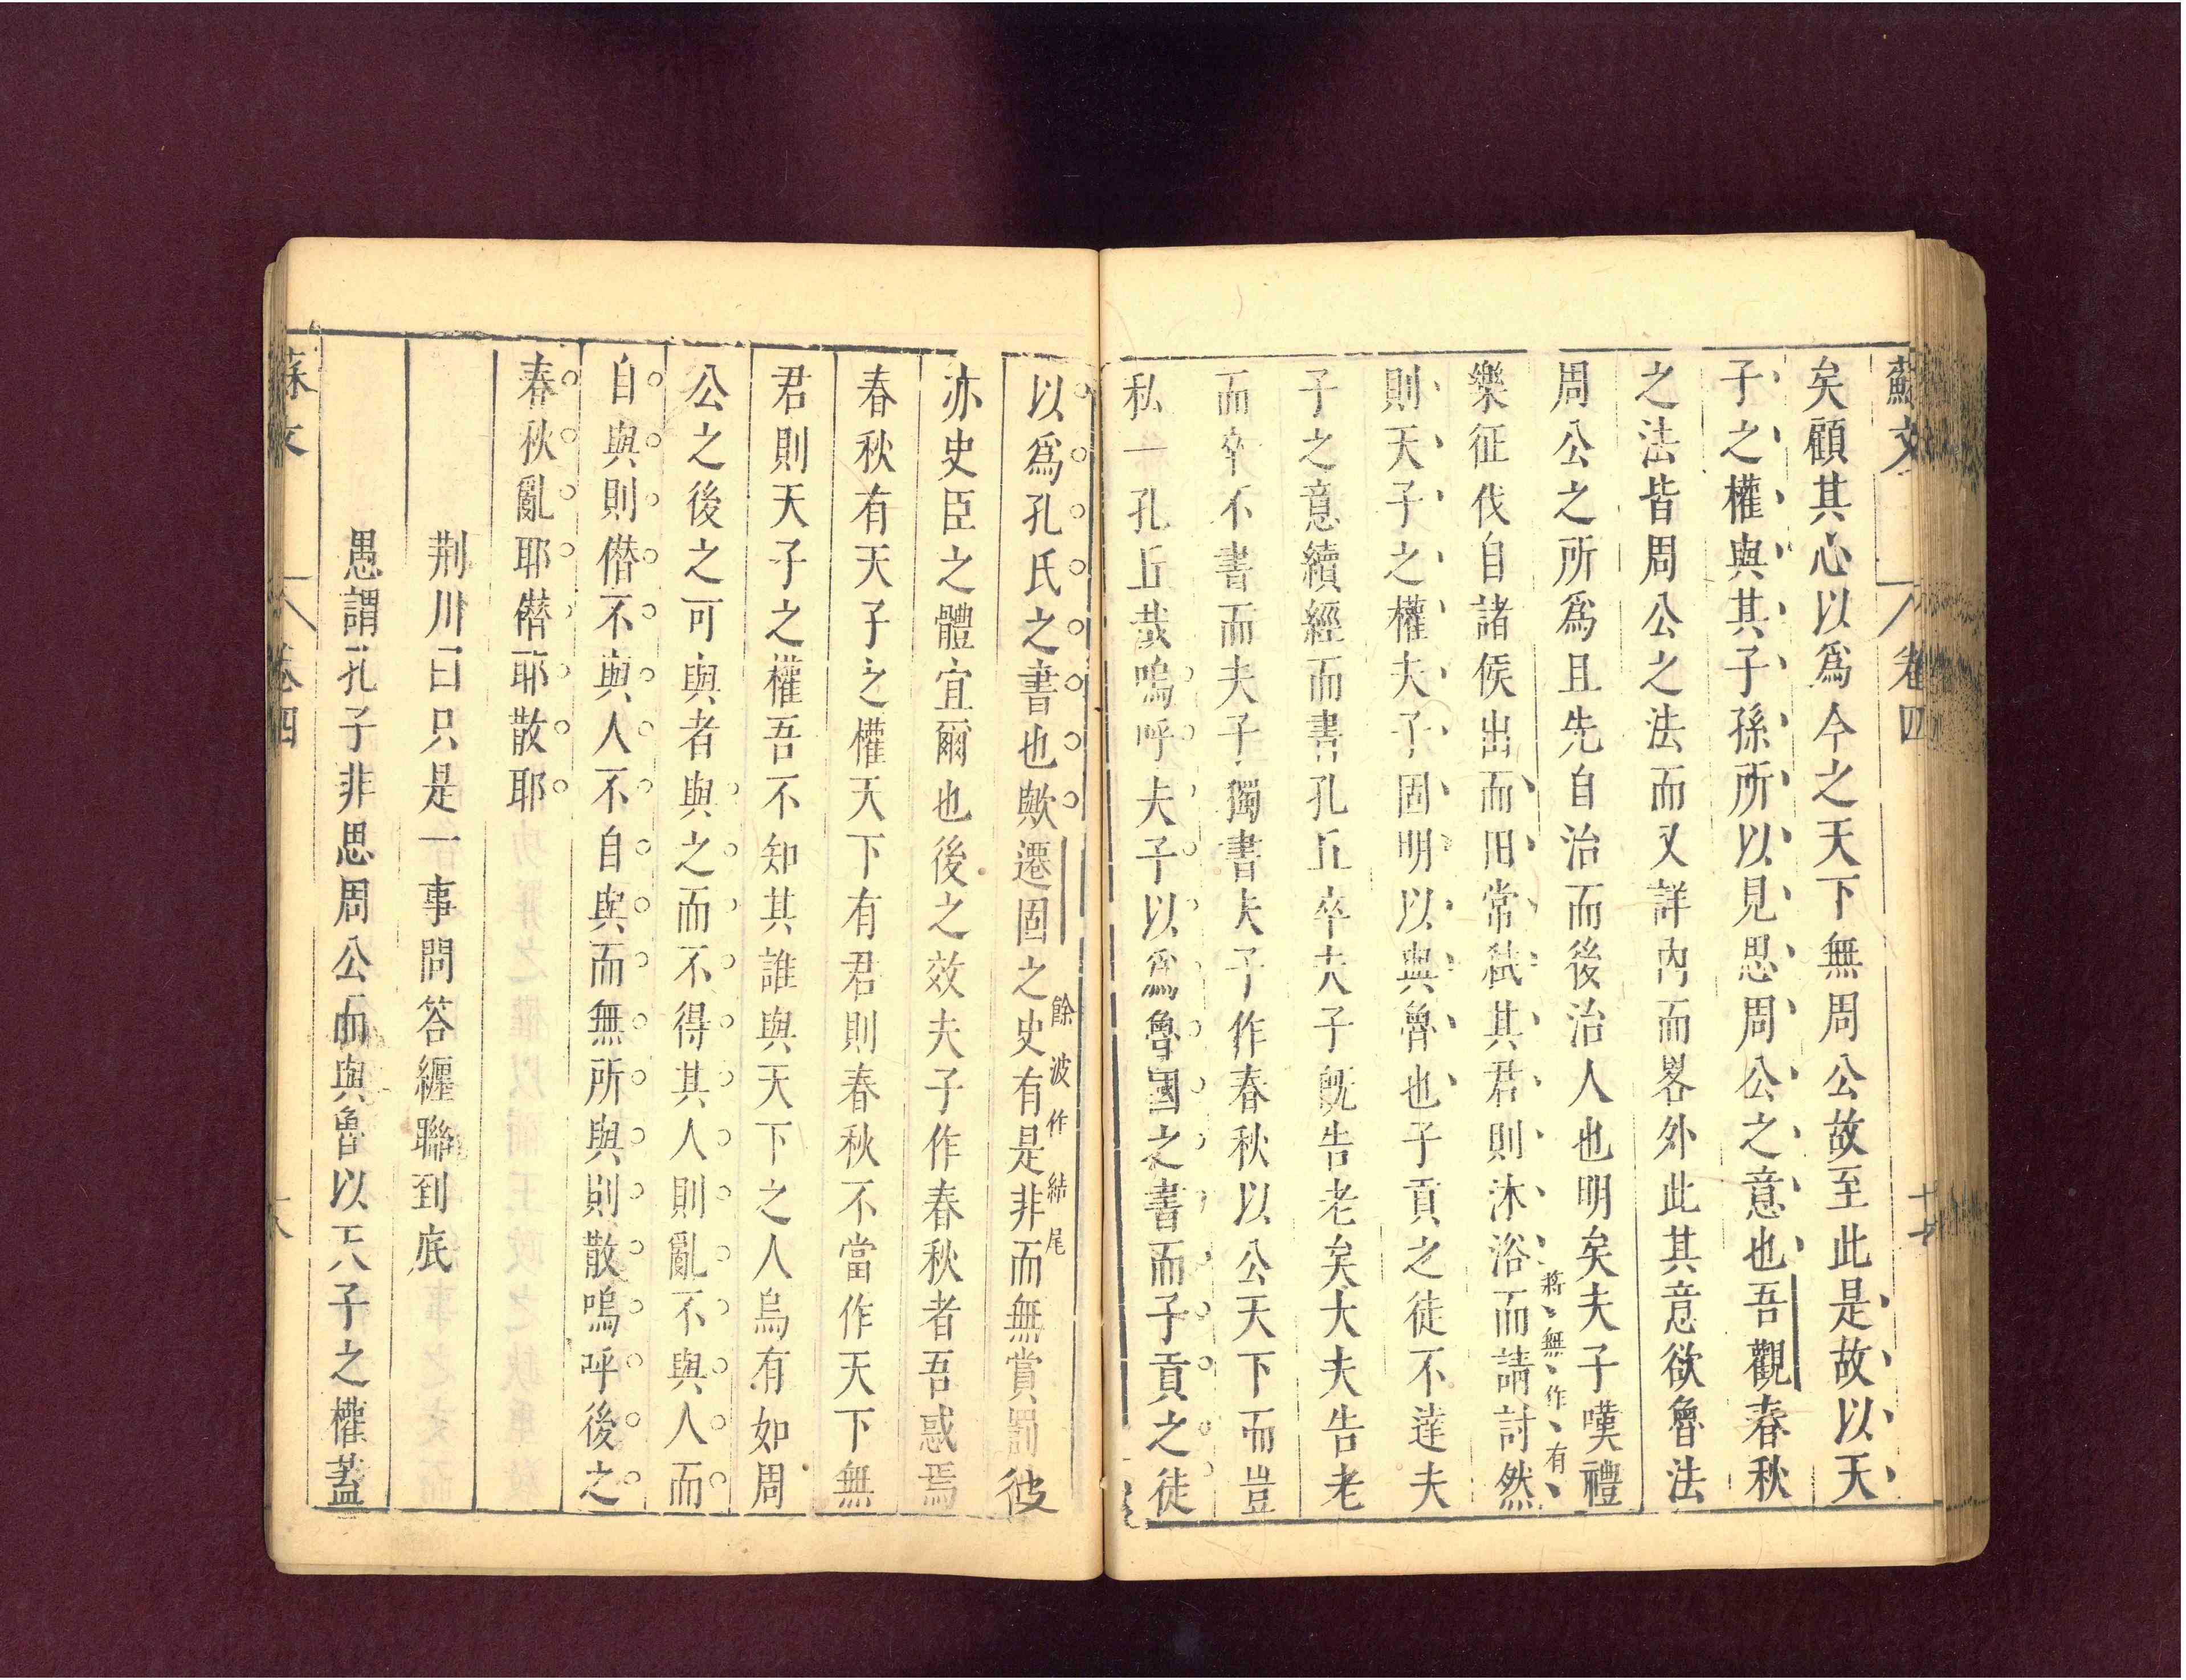 蘇文
卷四
十七
矣顧其心以爲今之天下無周公故至此是故以天
子之權與其子孫所以見思周公之意也吾觀春秋
之法皆周公之法而又詳內而畧外此其意欲魯法
周公之所爲且先自治而後治人也明矣夫子嘆禮
樂征伐自諸侯出而田常弑其君則沐浴而請討然
將無作有
則天子之權夫子固明以與魯也子貢之徒不達夫
子之意續經而書孔丘卒夫子旣告老矣大夫告老
而卒不書而夫子獨書夫子作春秋以公天下而豈
私一孔丘哉嗚呼夫子以爲魯國之書而子貢之徒
以爲孔氏之書也歟遷固之史有是非而無賞罰彼
餘波作結尾
亦史臣之體宜爾也後之效夫子作春秋者吾惑焉
春秋有天子之權天下有君則春秋不當作天下無
君則天子之權吾不知其誰與天下之人烏有如周
公之後之可與者與之而不得其人則亂不與人而
自與則僭不與人不自與而無所與則散嗚呼後之
春秋亂耶僭耶散耶
荆川曰只是一事問答纏聯到底
愚謂孔子非思周公而與魯以天子之權蓋
蘇文
卷四